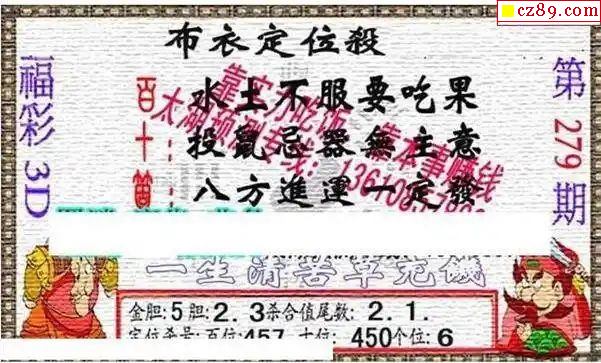 cz89.com
布衣定位殺
福彩3D
第279期
百十個:
水土不服要吃果
投鼠忌器無主意
八方進運一定發
靠实力吃饭 靠本事赚钱
一生清苦草充饑
金胆:5胆:2.3杀合值尾数:2.1.
定位杀号:百位:457 十位:450个位:6